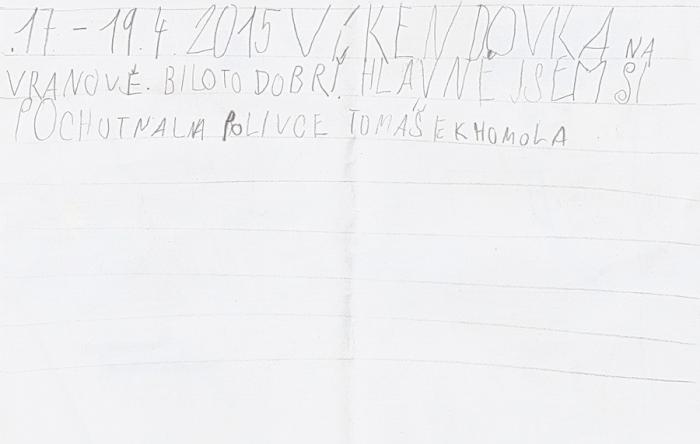 17. - 19. 4. 2015 VÍKENDOVKA NA
VRANOVĚ. BILOTO DOBRÍ. HLAVNĚ JSEM SI
POCHUTNAL NA POLIVCE TOMÁŠEK HOMOLA